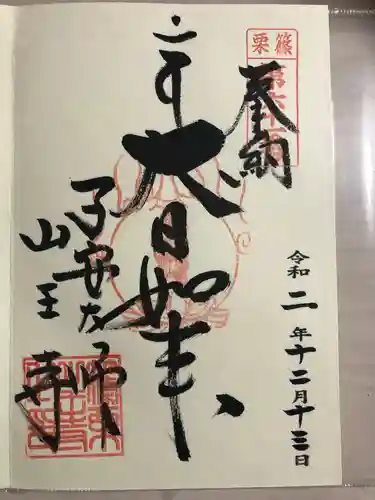 篠栗
奉納
令和二年十二月十三日
大日如来
子安大師
山王寺